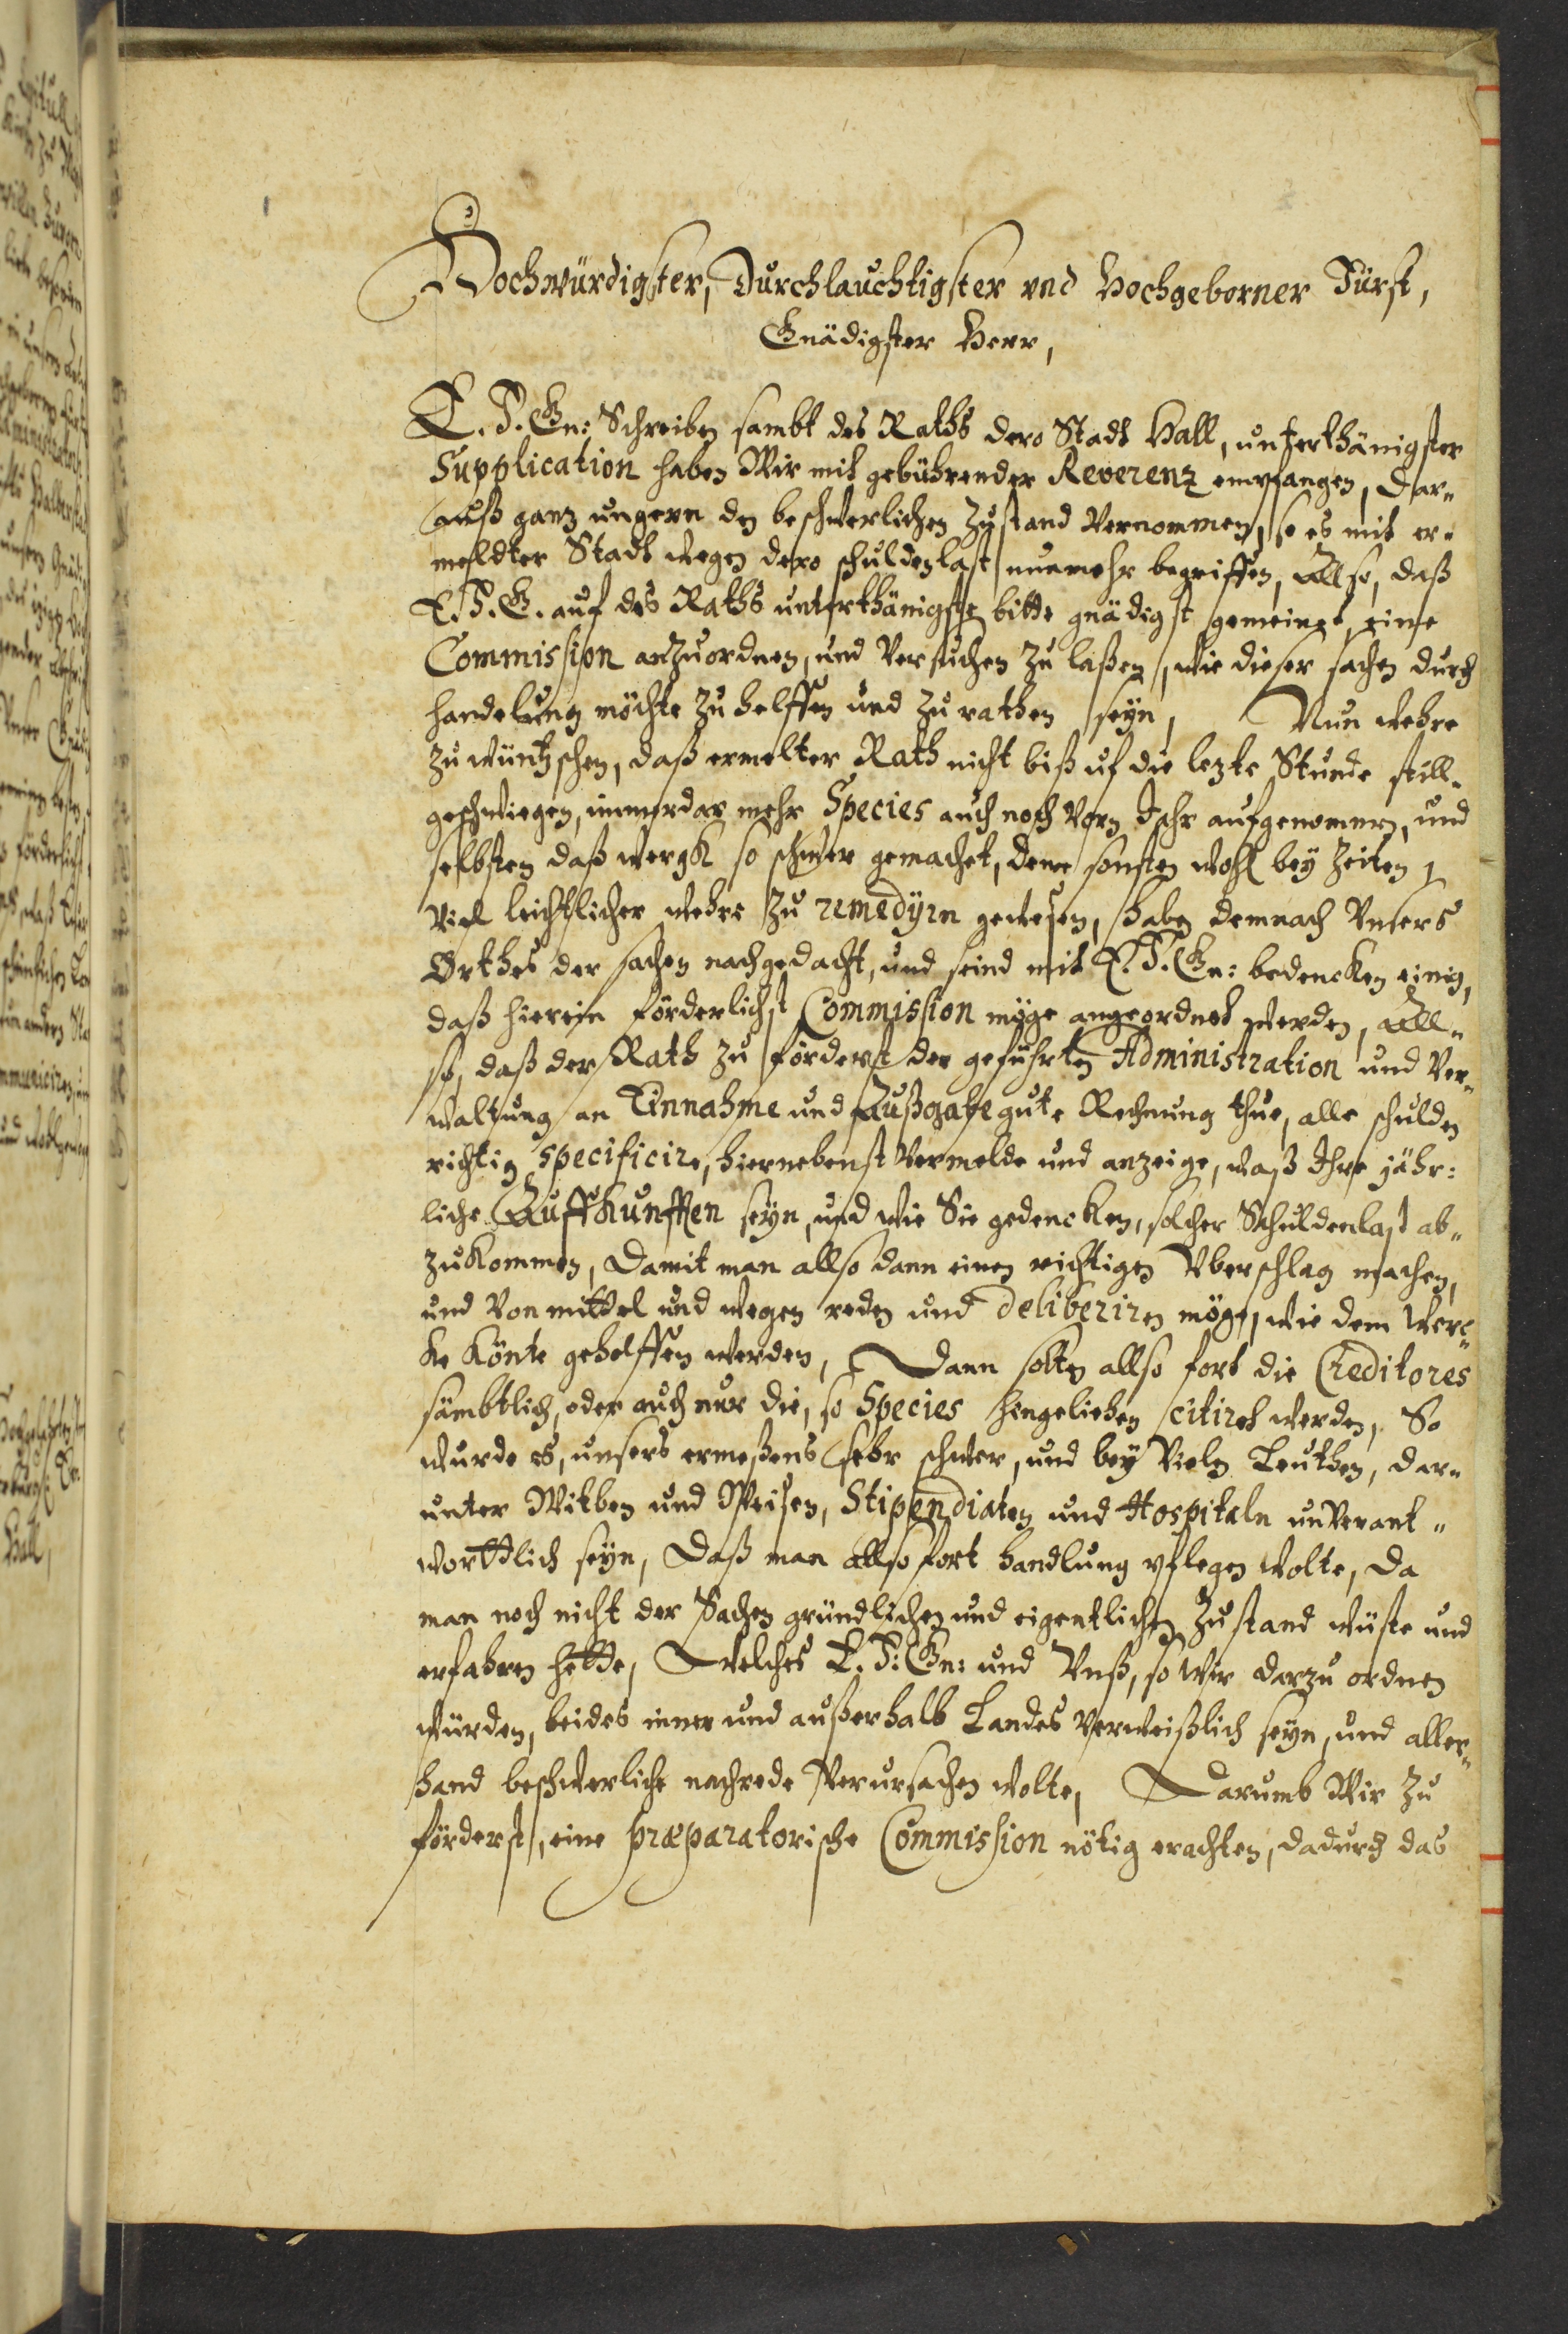 Hochwürdigster, Durchlauchtigster vnd Hochgeborner Fürst,
Gnädigster Herr,
E. F. Gn: Schreiben sambt des Raths dero Stadt Hall, unterthänigster
Supplication haben Wir mit gebührender Reverenz empfangen, dar„
auß ganz ungern den beschwerlichen Zustand vernommen, so es mit er„
meldter Stadt wegen dero schuldenlast nunmehr begriffen, Allso, daß
E. F. G. auf des Raths unterthänigste bitte gnädigst gemeinet, eine
Commission anzuordnen, und versuchen zu laßen, wie dieser sachen durch
handelung möchte zu helffen und zu rathen seyn, Nun wehre
zu wüntzschen, daß ermelter Rath nicht biß uf die lezte Stunde still„
geschwiegen, immerdar mehr Species auch noch vorn Jahr aufgenommen, und
selbsten daß wergk so schwer gemachet, deme sonsten wohl bey Zeiten
viel leichtlicher wehre zu remedyrn gewesen, haben demnach Vnsers
Orthes der sachen nachgedacht, und seind mit E. F. Gn: bedencken einig,
daß hierein förderlichst Commission möge angeordnet werden, All„
so, daß der Rath zu förderst der geführten Administration und Ver„
waltung an Einnahme und Außgabe gute Rechnung thue, alle schulden
richtig specificire, hiernebenst vermelde und anzeige, waß Ihre jähr:
liche Auffkunfften seyn, und wie Sie gedencken, solcher Schuldenlast ab„
zukommen, Damit man allso dann einen richtigen Vberschlag machen,
und von mittel und wegen reden und deliberiren möge, wie dem Werc„
ke könte geholffen werden, Dann solten allso fort die Creditores
sämbtlich, oder auch nur die, so Species hingeliehen citiret werden, So
wurde es, unsers ermeßens sehr schwer, und bey vielen Leuthen, dar„
unter Witben und Weisen, Stipendiaten und Hospitaln unverant„
worttlich seyn, Daß man allso fort handlung pflegen wolte, da
man noch nicht der Sachen gründlichen und eigentlichen Zustand wüste und
erfahren hette, Welches E. F: Gn: und Vnß, so wir darzu ordnen
würden, beides inner und außerhalb Landes verweißlich seyn, und aller„
hand beschwerliche nachrede verursachen wolte, Darumb Wir zu
förderst, eine præparatorische Commission nötig erachten, dadurch das